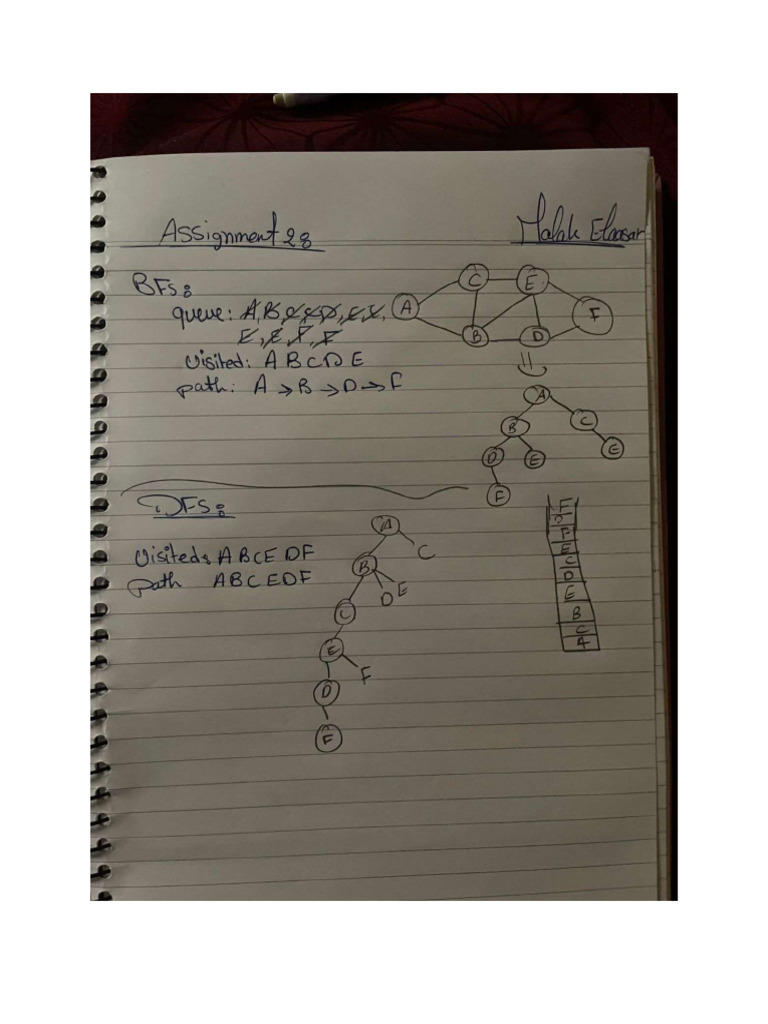 Assignment 2:
Malak Elaasar
BFS:
queue: A, B, C, C, D, E, E,
E, E, F, F
Visited: A B C D E
path: A → B → D → F
C
E
A
F
B
D
A
B
C
D
E
E
F
DFS:
Visited: A B C E D F
path A B C E D F
A
C
B
E
D
C
E
F
D
F
F
D
F
E
C
D
E
B
C
A